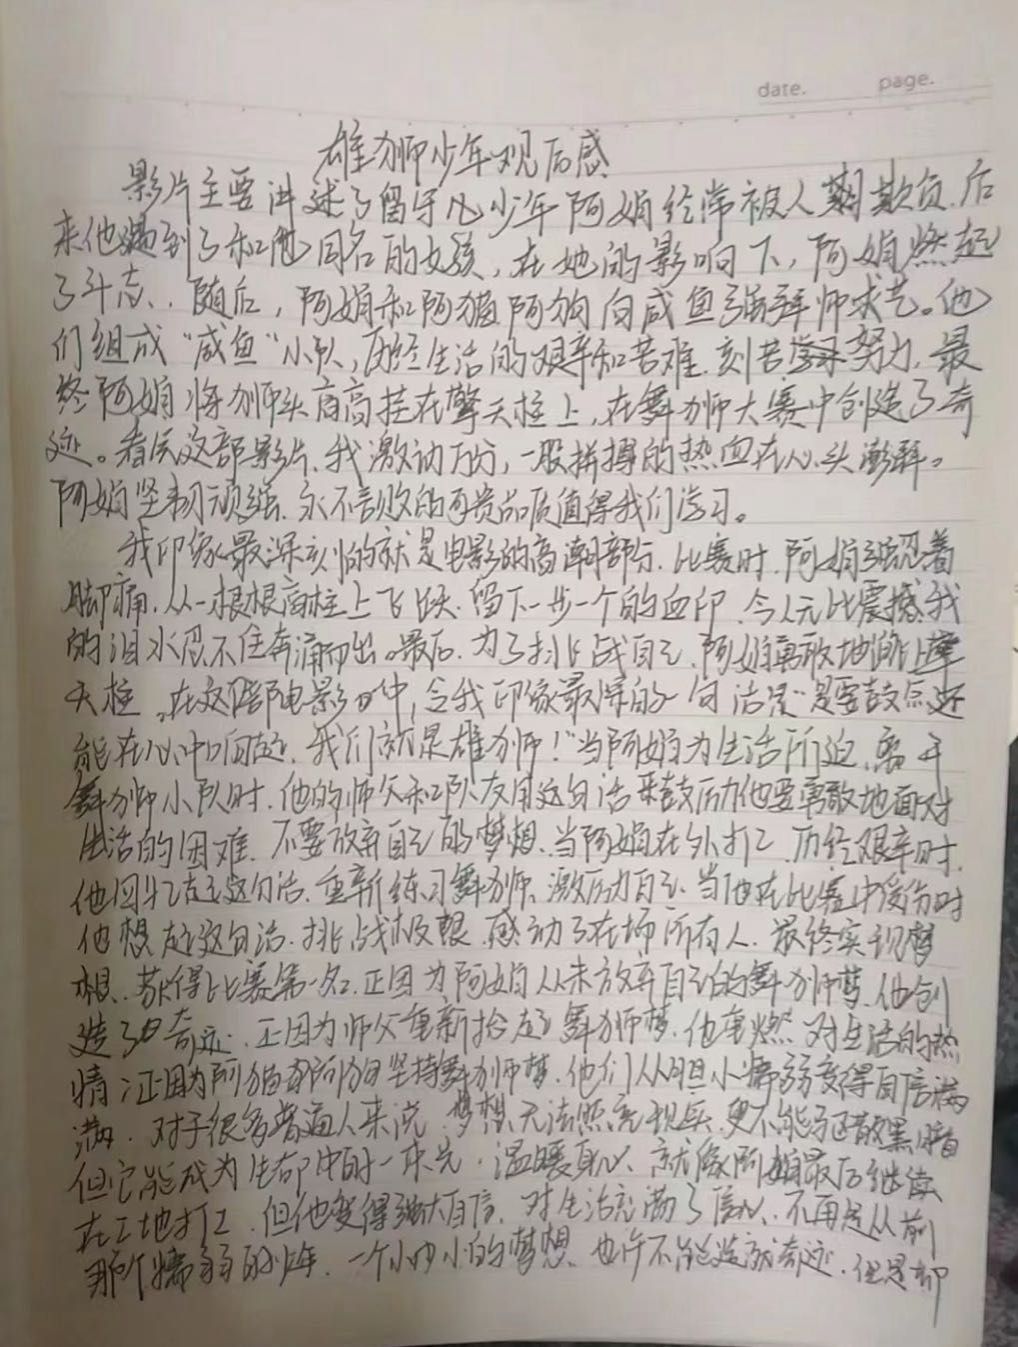 date. page.
雄狮少年观后感
影片主要讲述了留守儿少年阿娟经常被人欺负,后
来他遇到了和他同名的女孩,在她的影响下,阿娟燃起
了斗志,随后,阿娟和阿猫阿狗向咸鱼强拜师求艺。他
们组成“咸鱼”小队,历经生活的艰辛和苦难,刻苦努力,最
终阿娟将狮头高高挂在擎天柱上,在舞狮大赛中创造了奇
迹。看完这部影片,我激动万分,一股拼搏的热血在心头澎湃。
阿娟坚韧顽强、永不言败的可贵品质值得我们学习。
我印象最深刻的就是电影的高潮部分,比赛时,阿娟强忍着
脚痛,从一根根高柱上飞跃,留下一步一个的血印,令人无比震撼,我
的泪水忍不住奔涌而出。最后,为了挑战自己,阿娟勇敢地跳上擎
天柱。在这部电影中,令我印象最深的一句话是“是要鼓点还
能在心中响起,我们就是雄狮!”当阿娟为生活所迫,离开
舞狮小队时,他的师父和队友用这句话来鼓励他要勇敢地面对
生活的困难,不要放弃自己的梦想,当阿娟在外打工,历经艰辛时,
他回忆起这句话,重新练习舞狮,激励自己,当他在比赛中受伤时
他想起这句话,挑战极限,感动了在场所有人,最终实现梦
想,获得比赛第一名,正因为阿娟从未放弃自己的舞狮梦,他创
造了奇迹,正因为师父重新拾起舞狮梦,他重燃对生活的热
情;正因为阿猫和阿狗坚持舞狮梦,他们从胆小懦弱变得自信满
满,对于很多普通人来说,梦想无法照亮现实,更不能驱散黑暗
但它能成为生命中的一束光,温暖身心,就像阿娟最后继续
在工地打工,但他变得强大自信,对生活充满了信心,不再是从前
那个懦弱的少年,一个小小小的梦想,也许不能造就奇迹,但是却